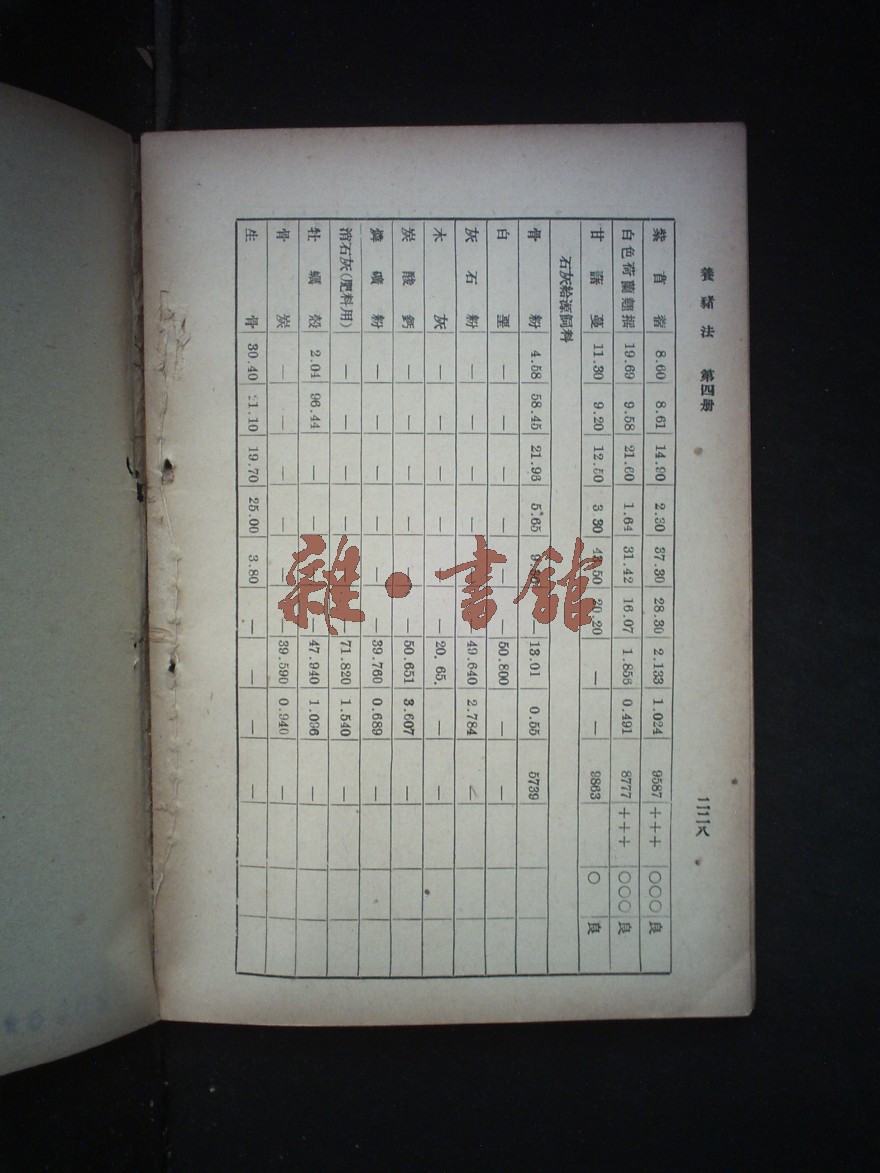 養豬法 第四章
二三八
紫苜蓿 8.60 8.61 14.90 2.30 37.30 28.30 2.133 1.024 9587 +++ ○○○ 良
白色荷蘭翹搖 19.69 9.58 21.60 1.64 31.42 16.07 1.856 0.491 8777 +++ ○○○ 良
甘藷蔓 11.30 9.20 12.50 3.30 20.20 — — 9863 ○ 良
石灰給源飼料
骨粉 4.58 58.45 21.96 5.65 — 13.01 0.55 5739
白堊 — — — — — — 50.800 — —
灰石粉 — — — — — 49.640 2.784 —
木灰 — — — — — 20.65. — —
炭酸鈣 — — — — — 50.651 3.607 —
燐礦粉 — — — — — — 39.760 0.689 —
消石灰(肥料用) — — — — — 71.820 1.540 —
牡蠣殼 2.04 96.44 — — — 47.940 1.096 —
骨炭 — — — — — 39.590 0.940 —
生骨 30.40 21.10 19.70 25.00 3.80 — — — —
雜·書館